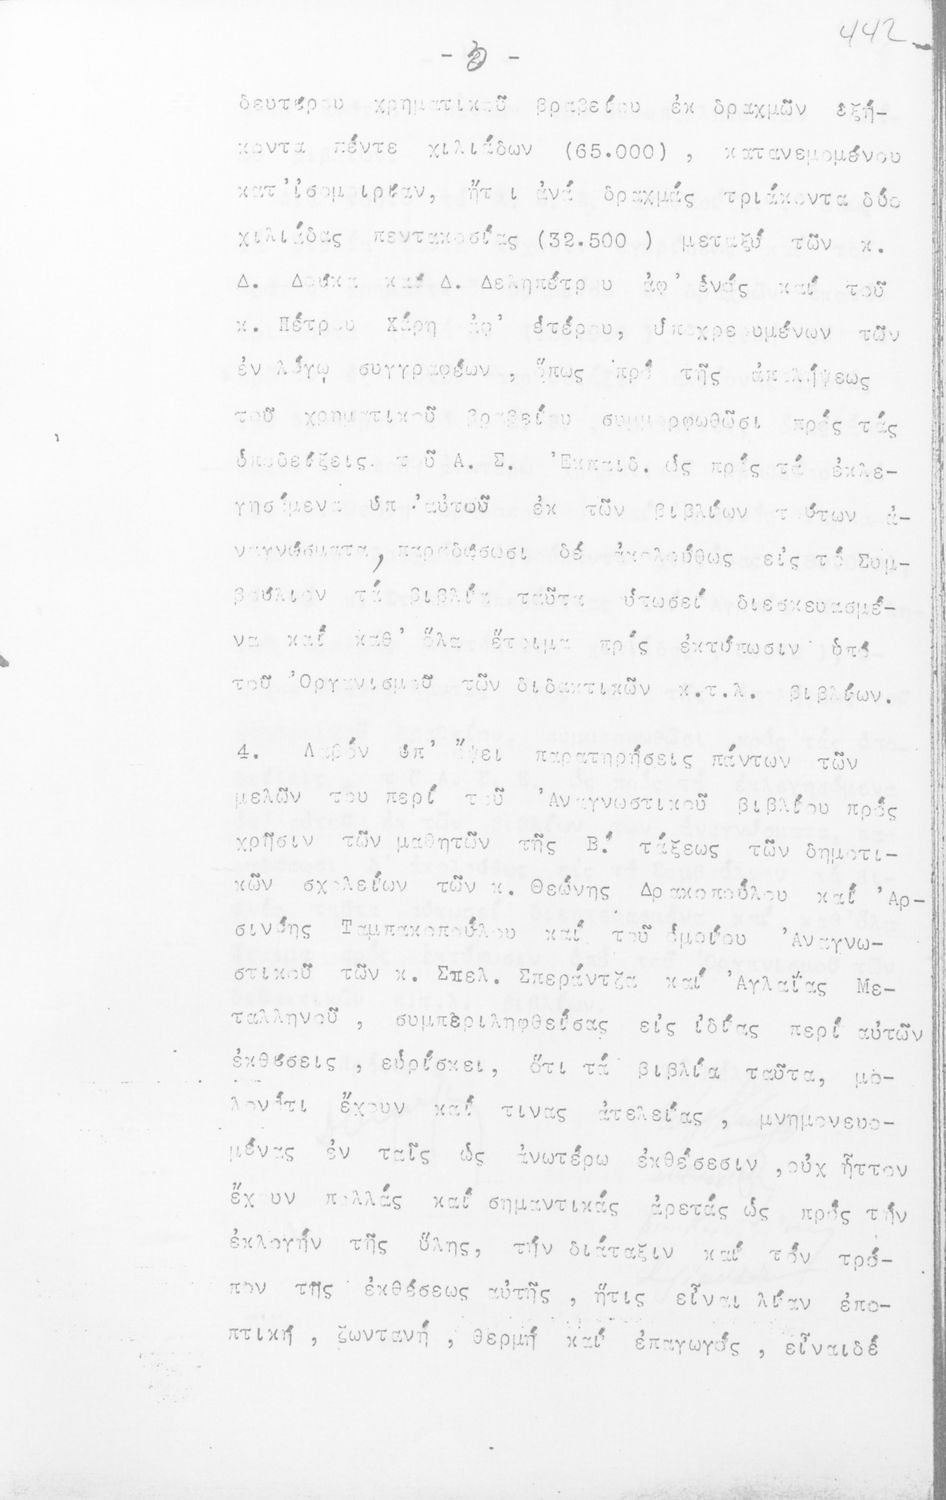 442
- 3 -
δευτέρου χρηματικοῦ βραβείου ἐκ δραχμῶν ἑξή-
κοντα πέντε χιλιάδων (65.000), κατανεμομένου
κατ' ἰσομοιρίαν, ἤτοι ἀνά δραχμάς τριάκοντα δύο
χιλιάδας πεντακοσίας (32.500) μεταξύ τῶν κ.
Δ. Δούκα καί Δ. Δεληπέτρου ἀφ' ἑνός καί τοῦ
κ. Πέτρου Χάρη ἀφ' ἑτέρου, ὑποχρεουμένων τῶν
ἐν λόγῳ συγγραφέων, ὅπως πρό τῆς ἀπολήψεως
τοῦ χρηματικοῦ βραβείου συμμορφωθῶσι πρός τάς
ὑποδείξεις τοῦ Α. Σ. Ἐκπαιδ. ὡς πρός τά ἐκλε-
γησόμενα ὑπ' αὐτοῦ ἐκ τῶν βιβλίων τούτων ἀ-
ναγνώσματα, παραδώσωσι δέ ἀκολούθως εἰς τό Συμ-
βούλιον τά βιβλία ταῦτα οὑτωσεί διεσκευασμέ-
να καί καθ' ὅλα ἕτοιμα πρός ἐκτύπωσιν ὑπό
τοῦ Ὀργανισμοῦ τῶν διδακτικῶν κ.τ.λ. βιβλίων.
4. Λαβόν ὑπ' ὄψει παρατηρήσεις πάντων τῶν
μελῶν του περί τοῦ Ἀναγνωστικοῦ βιβλίου πρός
χρῆσιν τῶν μαθητῶν τῆς Β! τάξεως τῶν δημοτι-
κῶν σχολείων τῶν κ. Θεώνης Δρακοπούλου καί Ἀρ-
σινόης Ταμπακοπούλου καί τοῦ ὁμοίου Ἀναγνω-
στικοῦ τῶν κ. Σπελ. Σπεράντζα καί Ἀγλαΐας Με-
ταλληνοῦ, συμπεριληφθείσας εἰς ἰδίας περί αὐτῶν
ἐκθέσεις, εὑρίσκει, ὅτι τά βιβλία ταῦτα, μο-
λονότι ἔχουν καί τινας ἀτελείας, μνημονευο-
μένας ἐν ταῖς ὡς ἀνωτέρω ἐκθέσεσιν, οὐχ ἧττον
ἔχουν πολλάς καί σημαντικάς ἀρετάς ὡς πρός τήν
ἐκλογήν τῆς ὕλης, τήν διάταξιν καί τόν τρό-
πον τῆς ἐκθέσεως αὐτῆς, ἥτις εἶναι λίαν ἐπο-
πτική, ζωντανή, θερμή καί ἐπαγωγός, εἶναιδέ